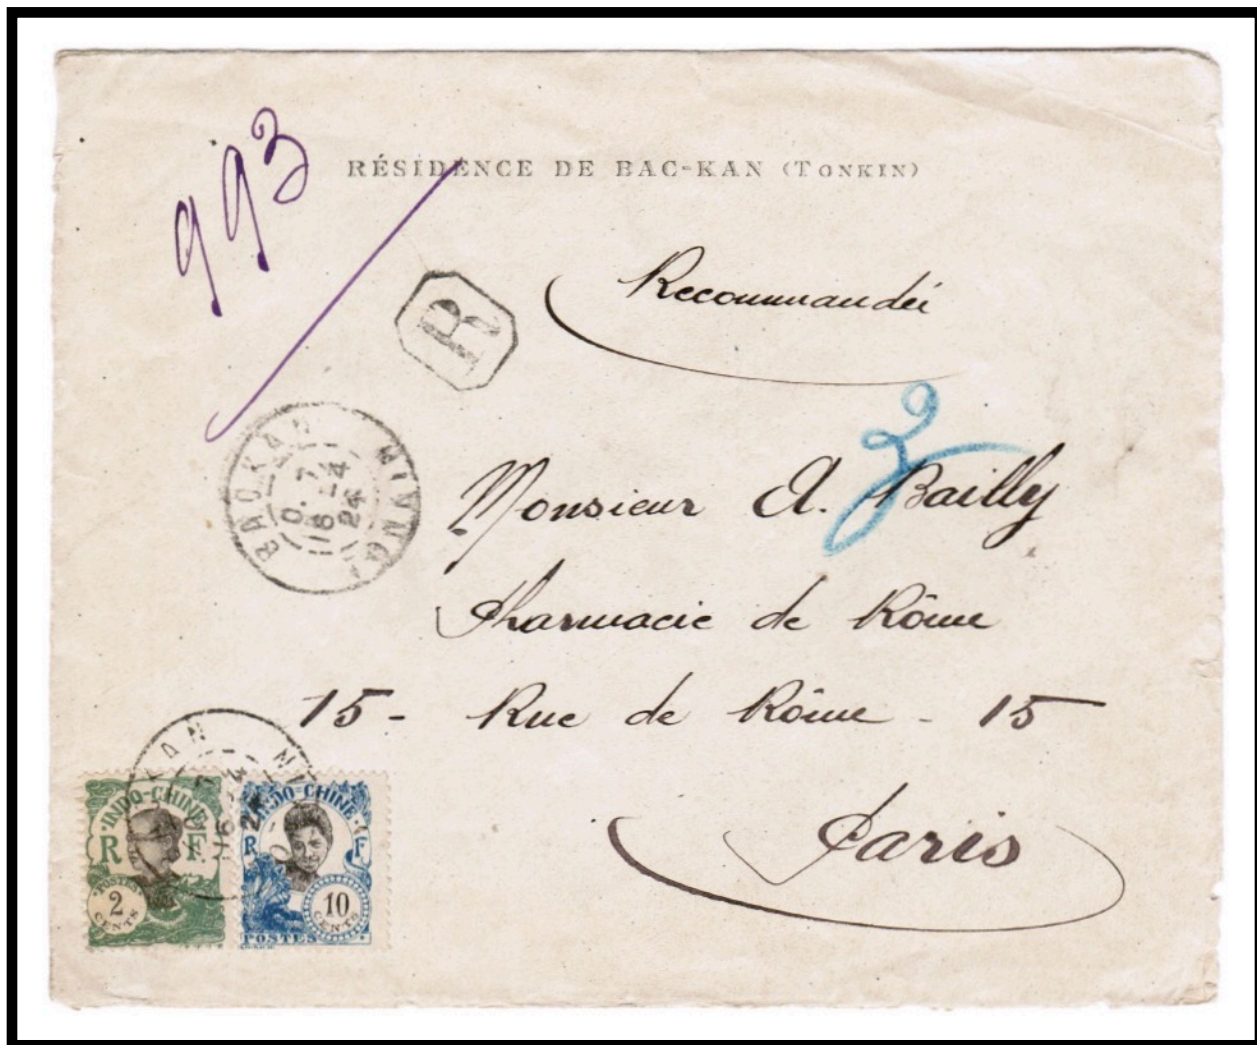 993
RÉSIDENCE DE BAC-KAN (TONKIN)
R
Recommandée
BAC KAN
7
16 4
24
3
Monsieur A. Bailly
Pharmacie de Rôme
15 - Rue de Rôme - 15
Paris
KAN
INDO-CHINE
R F
POSTES
2
CENTS
INDO-CHINE
R F
10
CENTS
POSTES